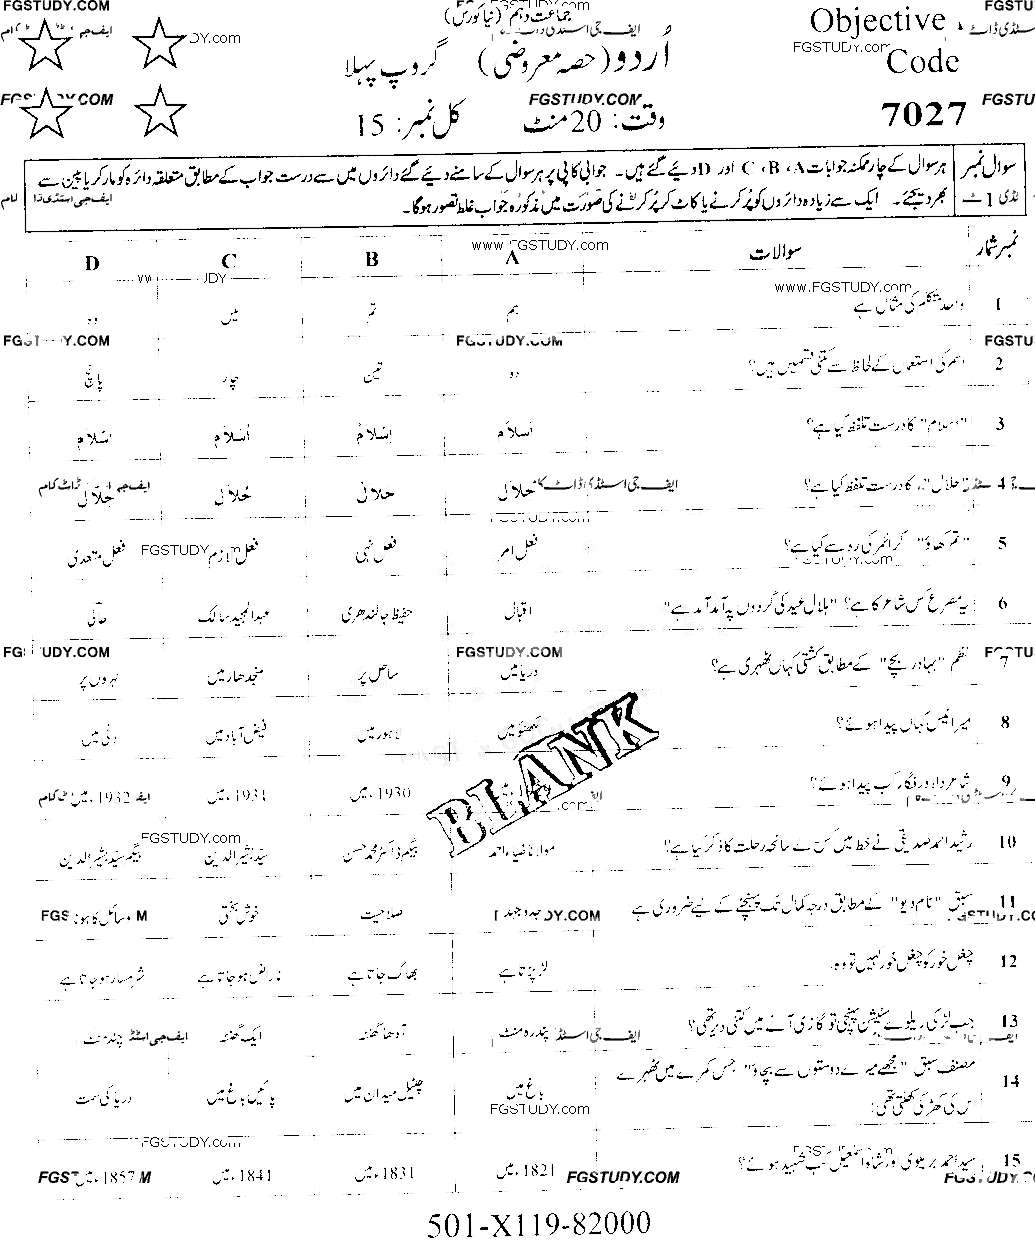 FGSTUDY.COM
جماعت دہم (نیا کورس)
Objective
Code
7027
اُردو (حصہ معروضی) گروپ پہلا
وقت: 20 منٹ کل نمبر: 15
FGSTUDY.COM
سوال نمبر 1 ہر سوال کے چار ممکنہ جوابات A، B، C اور D دیئے گئے ہیں۔ جوابی کاپی پر ہر سوال کے سامنے دیئے گئے دائروں میں سے درست جواب کے مطابق متعلقہ دائرہ کو مارکر یا پین سے
بھر دیجئے۔ ایک سے زیادہ دائروں کو پُر کرنے یا کاٹ کر پُر کرنے کی صورت میں مذکورہ جواب غلط تصور ہوگا۔
www.FGSTUDY.COM
نمبر شمار سوالات A B C D
1 واحد متکلم کی مثال ہے ہم تم میں وہ
2 اسم کی استعمال کے لحاظ سے کتنی قسمیں ہیں؟ دو تین چار پانچ
3 "اسلام" کا درست تلفظ کیا ہے؟ اسلام اسلام اسلام اسلام
4 "حلال" کا درست تلفظ کیا ہے؟
5 "تم کھاؤ" گرائمر کی رو سے کیا ہے؟ فعل امر فعل نہی فعل لازم فعل متعدی
6 یہ مصرع کس شاعر کا ہے؟ "ہلال عید کی گردوں پہ آمد آمد ہے" اقبال حفیظ جالندھری عبدالمجید سالک حالی
7 نظم "بہادر بچے" کے مطابق کشتی کہاں ٹھہری ہے؟ دریا میں ساحل پر منجدھار میں لہروں پر
8 میر انیس کہاں پیدا ہوئے؟ لکھنؤ میں لاہور میں فیض آباد میں دلی میں
9 شاعر دلاور فگار کب پیدا ہوئے؟ 1930ء میں 1931ء میں 1932ء میں
10 رشید احمد صدیقی نے خط میں کس کے سانحہ رحلت کا ذکر کیا ہے؟ مولانا ضیاء احمد بیگم ڈاکٹر محمد حسن سید بشیر الدین بیگم سید بشیر الدین
11 سبق "نام دیو" کے مطابق درجہ کمال تک پہنچنے کے لیے ضروری ہے جدوجہد صلاحیت خوش بختی وسائل کا ہونا
12 چغل خور کو چغل خور کہیں تو وہ: لڑ پڑتا ہے بھاگ جاتا ہے ناراض ہو جاتا ہے شرمسار ہو جاتا ہے
13 جب لڑکی ریلوے سٹیشن پہنچی تو گاڑی آنے میں کتنی دیر تھی؟ پندرہ منٹ آدھا گھنٹہ ایک گھنٹہ چند منٹ
14 مصنف سبق "مجھے میرے دوستوں سے بچاؤ" جس کمرے میں ٹھہرے
اس کی کھڑکی کھلتی تھی: باغ میں چٹیل میدان میں پائیں باغ میں دریا کی سمت
15 سید احمد بریلوی اور شاہ اسمٰعیل کب شہید ہوئے؟ 1821ء میں 1831ء میں 1841ء میں 1857ء میں
BLANK
FGSTUDY.COM
501-X119-82000